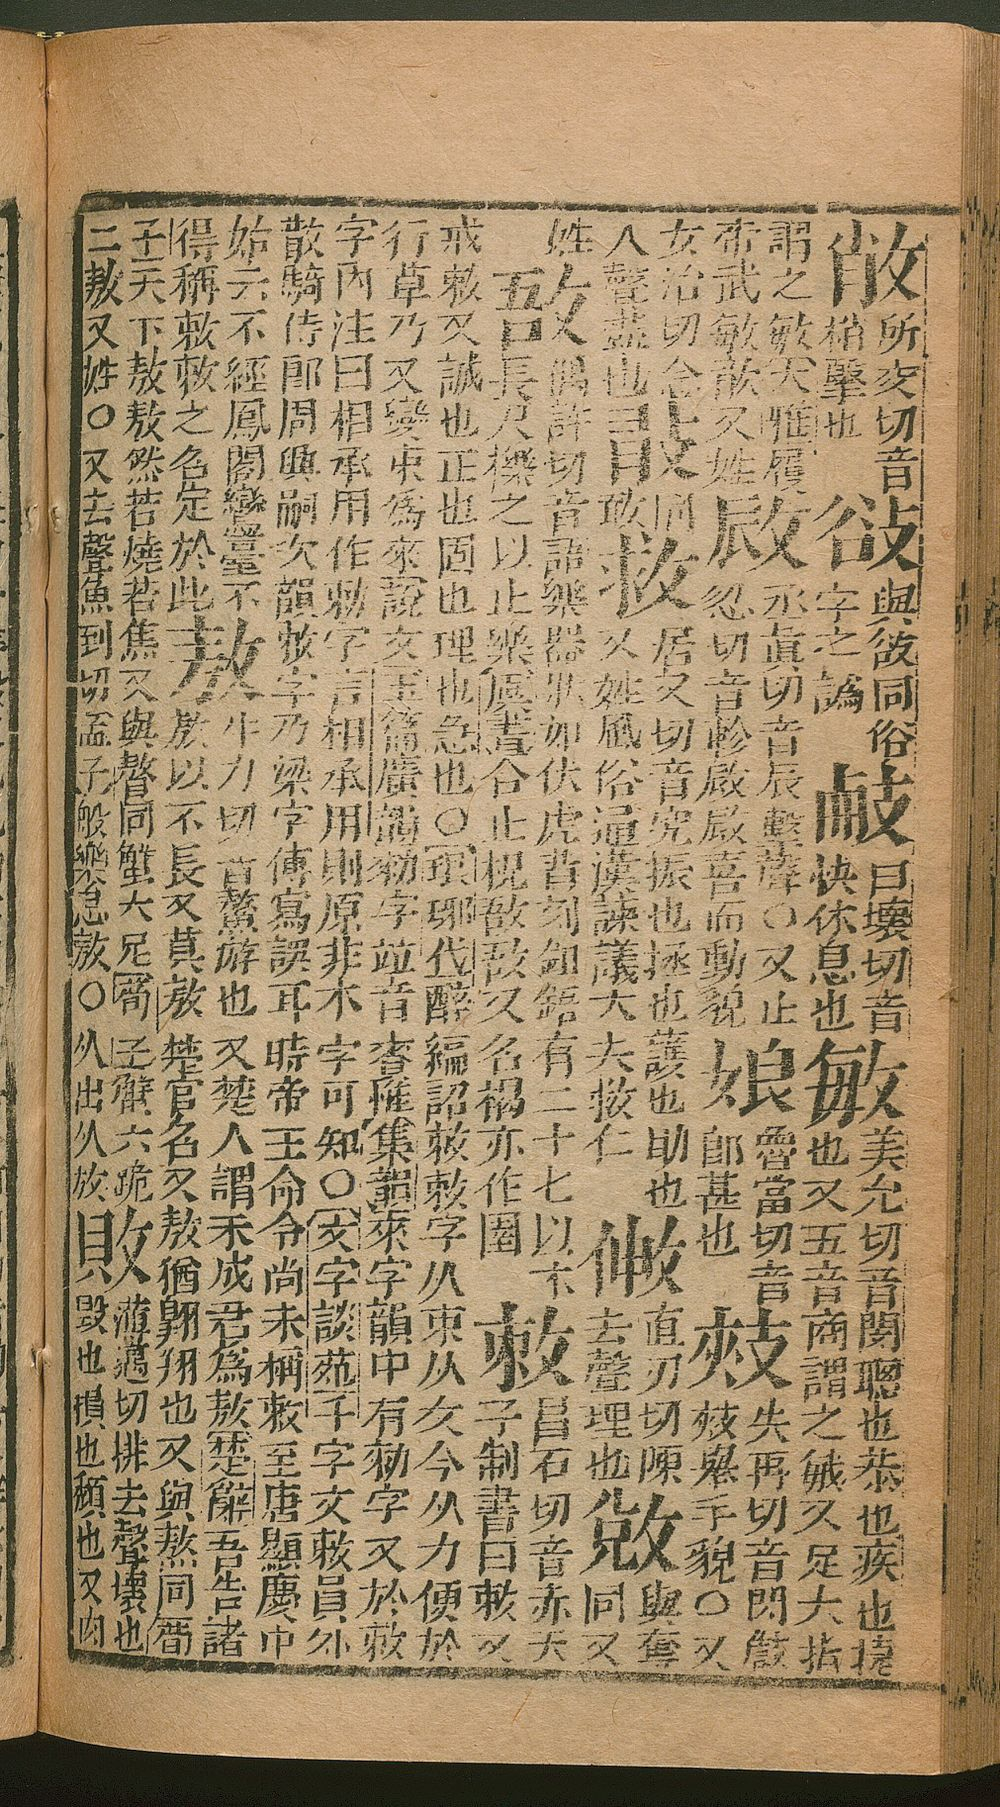 所交切音梢擊也 與敋同俗字之譌 曰壞切音快休息也 敏美允切音閔聰也恭也疾也捷也又五音商謂之敏又足大指
謂之敏爾雅履帝武敏歆又姓 敐丞眞切音辰擊聲○又止忍切音軫敐敐喜而動貌 魯當切音郎甚也 㪎失冉切音閃㪎㪎舉手貌○又
女洽切念入聲盡也 同敢 救居又切音究振也拯也護也助也又姓風俗通漢諫議大夫救仁 直刃切陳去聲理也 敓與奪同又
姓 敔偶許切音語樂器狀如伏虎背刻鉏鋙有二十七以木長尺櫟之以止樂虞書合止柷敔敔又名楬亦作圉 敕昌石切音赤天子制書曰敕又
戒敕又誠也正也固也理也急也○瑯琊代醉編詔敕敕字从束从攵今从力便於
行草乃又變束爲來說文玉篇廣韻勑字竝音賚惟集韻來字韻中有勑字又於敕
字內注曰相承用作勑字言相承用則原非本字可知○友字談苑千字文敕員外
散騎侍郎周興嗣次韻敕字乃梁字傳寫誤耳時帝王命令尚未稱敕至唐顯慶中
始云不經鳳閣鸞臺不得稱敕敕之名定於此 敖牛刀切音鰲游也又楚人謂未成君爲敖楚辭吾告諸敖以不長又莫敖楚官名又敖猶翱翔也又與熬同荀
子天下敖敖然若燒若焦又與螯同蟹六足荀子蟹六跪二敖又姓○又去聲魚到切孟子般樂怠敖○从出从放 敗薄邁切排去聲壞也毀也損也頽也又肉